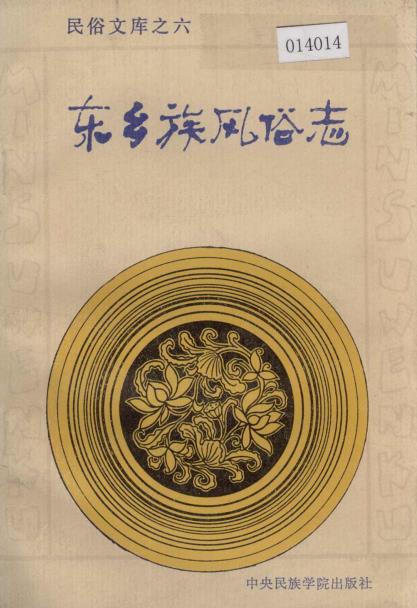 民俗文库之六
014014
东乡族风俗志
MINSUWENKU
MINSUWENKU
中央民族学院出版社